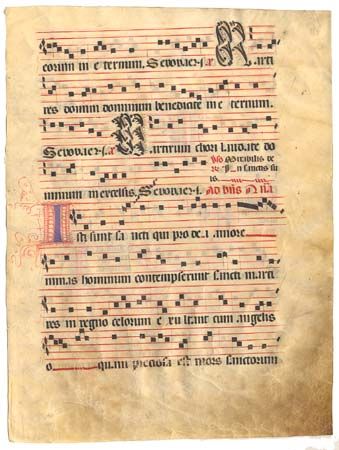 eorum in eternum. Seuouae. Marti
res domini dominum benedicite in eternum.
Seuouae. Martirum chori laudate do
minum in excelsis. Seuouae.
Isti sunt sancti qui pro dei amore
minas hominum contempserunt sancti marti
res in regno celorum exultant cum angelis
o quam preciosa est mors sanctorum